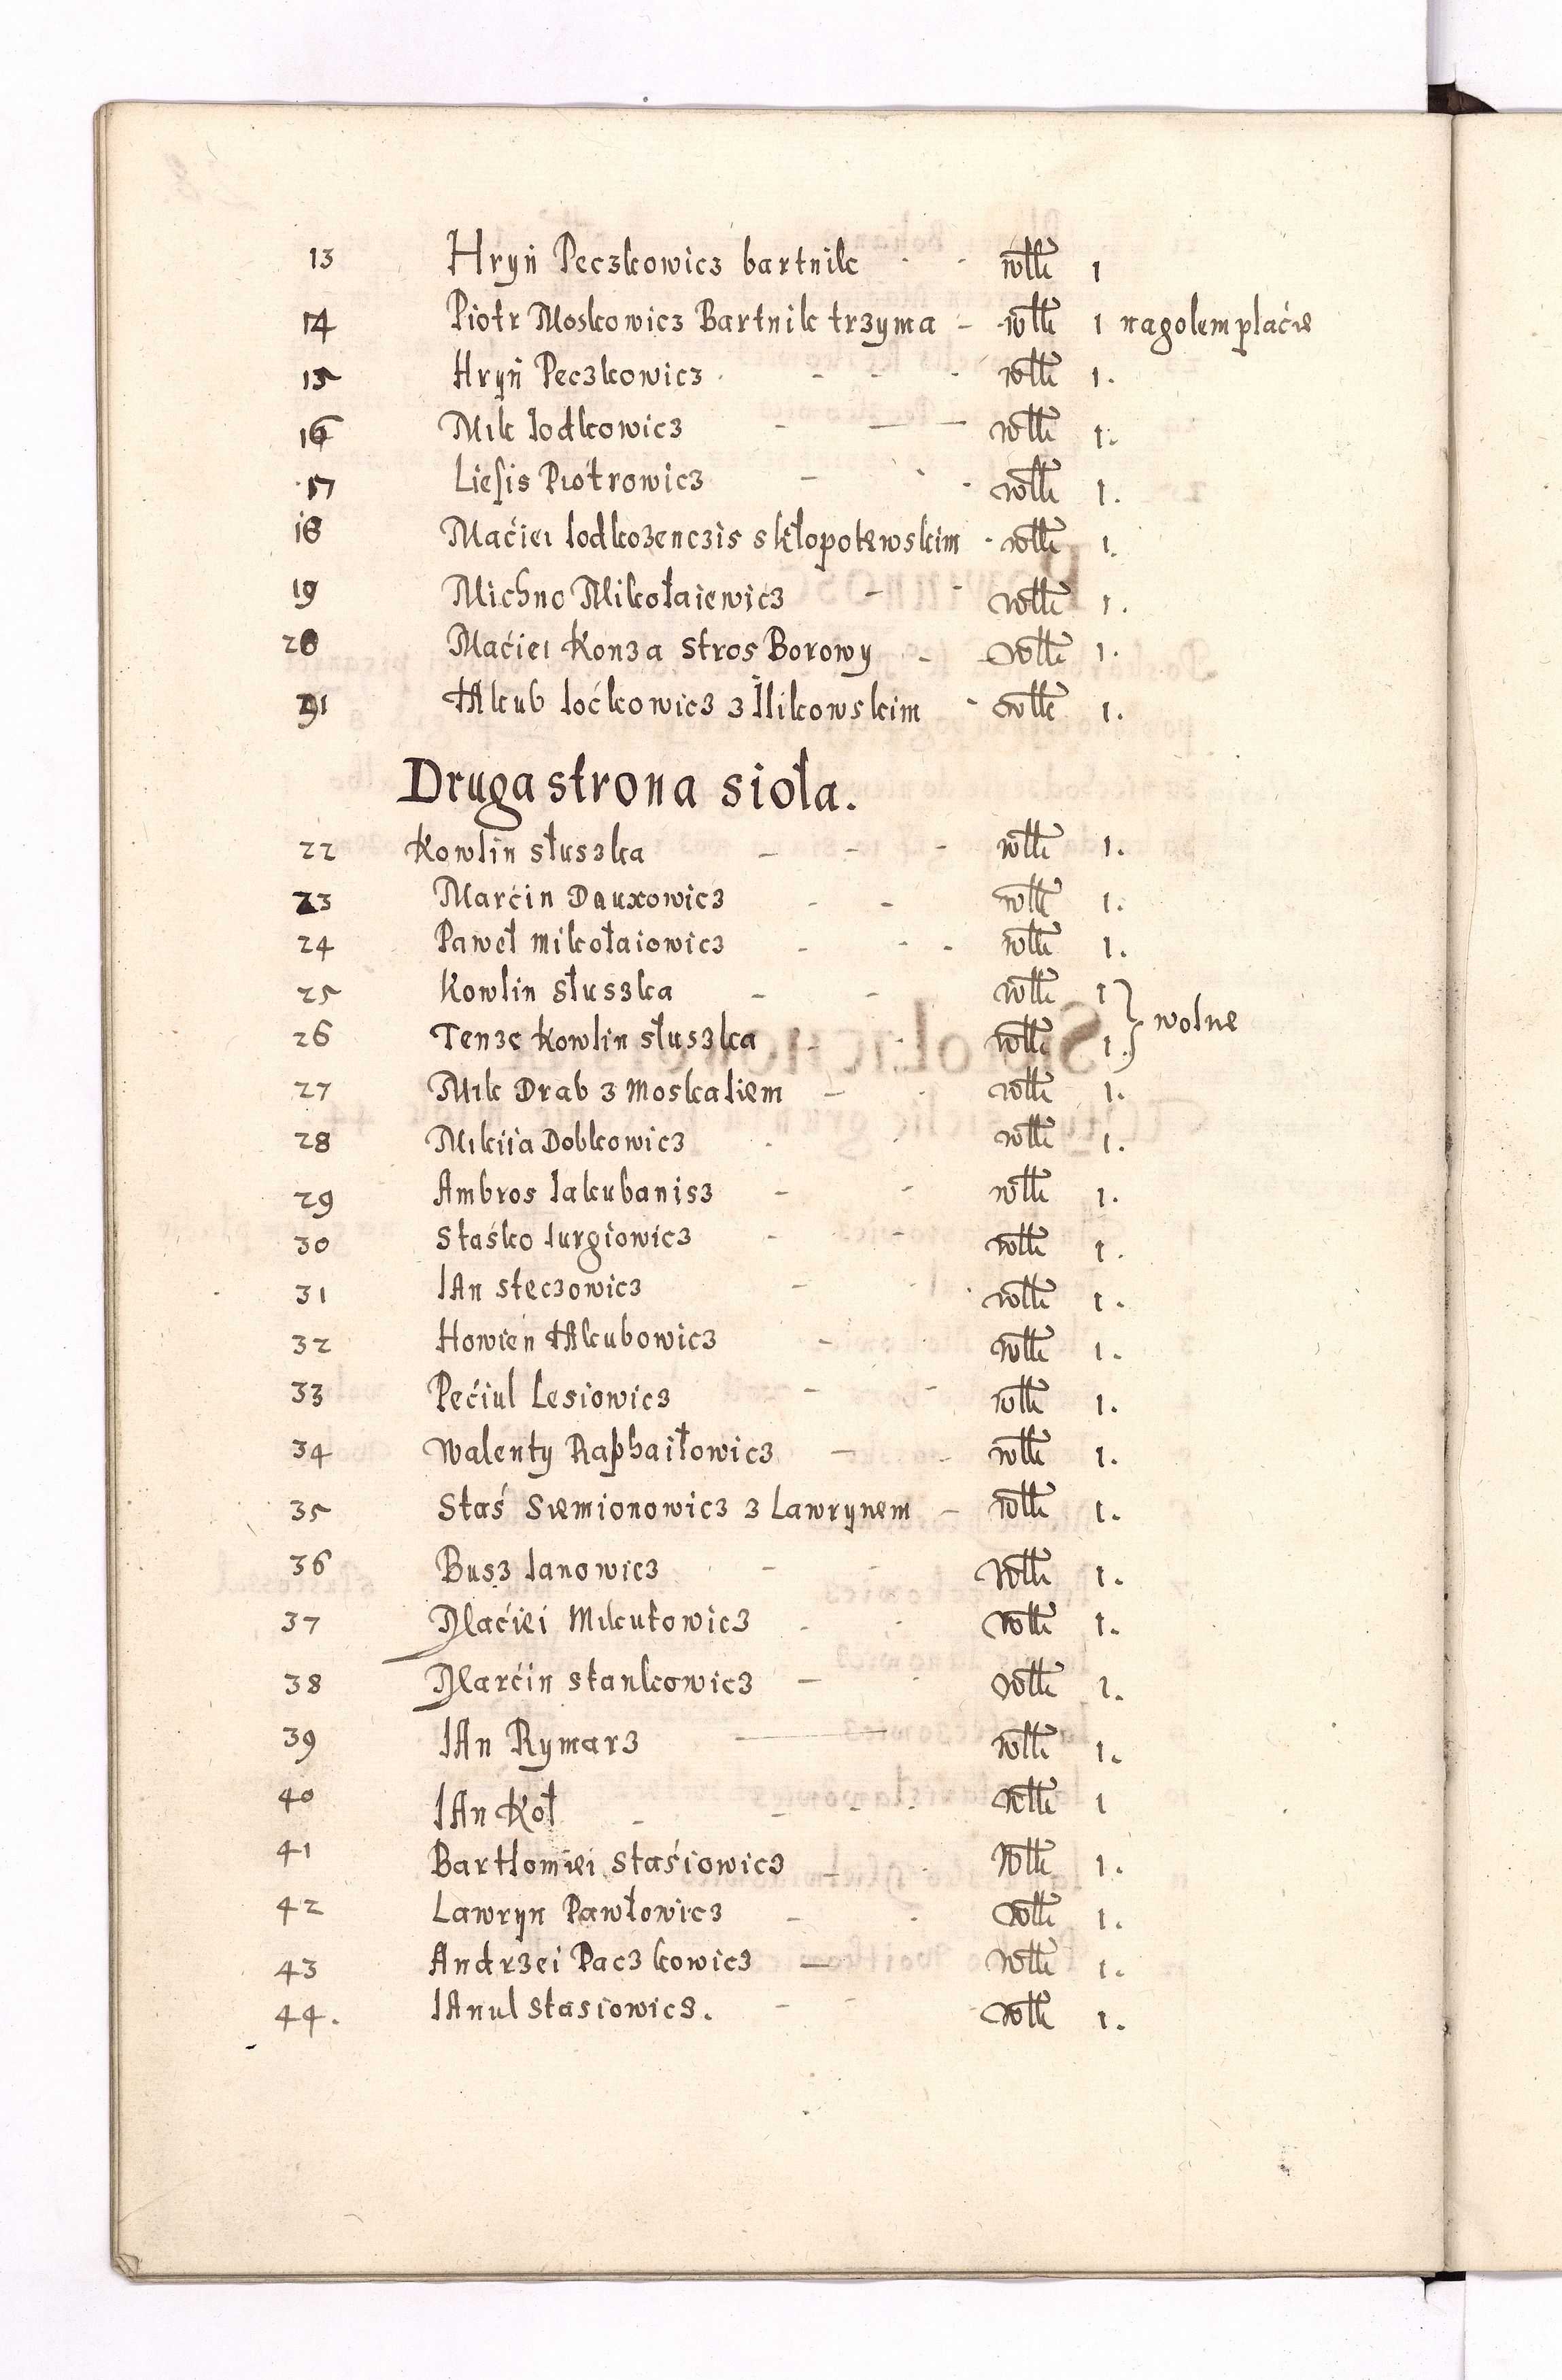 13 Hryń Peczkowicz bartnik włk 1
14 Piotr Moskowicz Bartnik trzyma - włk 1 nagolem płacie
15 Hryń Peczkowicz - - - włk 1.
16 Mik Iodkowicz - - - włk 1.
17 Liesis Piotrowicz - włk 1.
18 Maciei Iodkozenczis s kłopotewskim włk 1.
19 Michno Mikołaiewicz - - włk 1.
20 Maciei Konza stros Borowy - włk 1.
21 IAkub Ioćkowicz z Ilikowskim - włk 1.
Druga strona sioła.
22 Kowlin słuszka - - - włk 1.
23 Marcin Dauxowicz - - włk 1.
24 Paweł mikołaiowicz - - - włk 1.
25 Kowlin słuszka - - włk 1 } wolne
26 Tenze Kowlin słuszka włk 1.
27 Mik Drab z Moskaliem - włk 1.
28 Mikiia Dobkowicz włk 1.
29 Ambros Iakubanisz - - włk 1.
30 Staśko Iurgiowicz - - włk 1.
31 IAn steczowicz - włk 1.
32 Howien IAkubowicz - włk 1.
33 Peciul Lesiowicz - - włk 1.
34 Walenty Raphaiłowicz - włk 1.
35 Staś Siemionowicz z Lawrynem - włk 1.
36 Busz Ianowicz - - włk 1.
37 Maciei Mikutowicz - włk 1.
38 Marcin stankowicz - włk 1.
39 IAn Rymarz - włk 1.
40 IAn Koł - - - włk 1
41 Bartłomiei Staśiowicz - włk 1.
42 Lawryn Pawłowicz - włk 1.
43 Andrzei Paczkowicz - włk 1.
44. IAnul stasiowicz. - - włk 1.